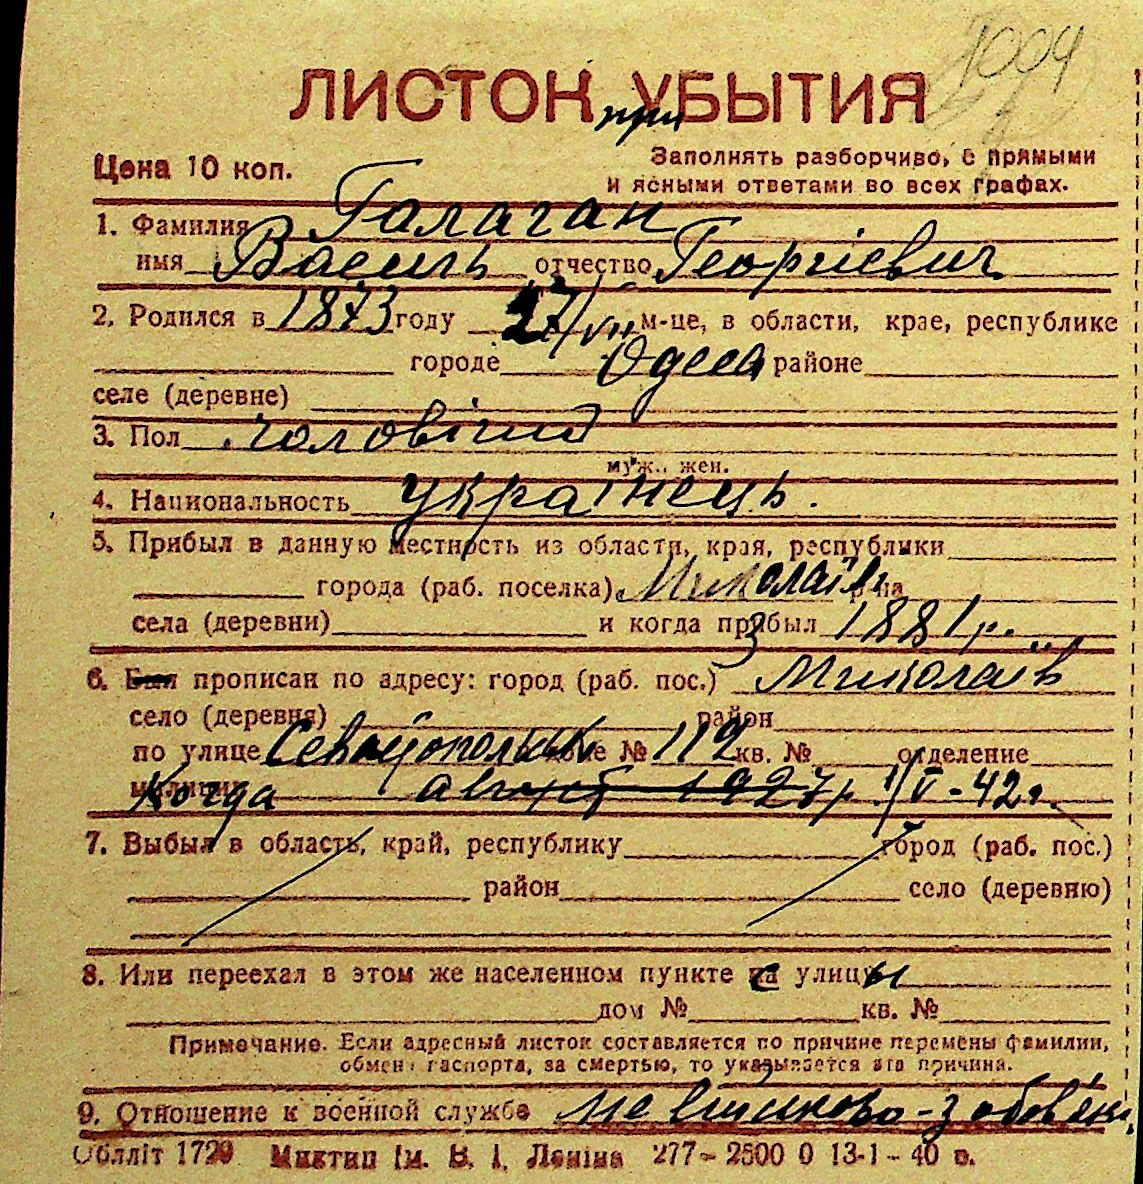 1004
ЛИСТОК при УБЫТИЯ
Цена 10 коп.
Заполнять разборчиво, с прямыми
и ясными ответами во всех графах.
1. Фамилия Галаган
имя Василь отчество Георгіевич
2. Родился в 1873 году 27/VII м-це, в области, крае, республике
городе Одеса районе
селе (деревне)
3. Пол чоловічий
муж., жен.
4. Национальность українець.
5. Прибыл в данную местность из области, края, республики
города (раб. поселка) Миколаїв р-на
села (деревни) и когда прибыл 1881 р.
6. Был прописан по адресу: город (раб. пос.) Миколаїв
село (деревня) район
по улице Севастопольск доме № 112 кв. № отделение
милиции Когда август 1927 р. 1/V-42 г.
7. Выбыл в область, край, республику город (раб. пос.)
район село (деревню)
8. Или переехал в этом же населенном пункте с улицы
дом № кв. №
Примечание. Если адресный листок составляется по причине перемены фамилии,
обмена паспорта, за смертью, то указывается эта причина.
9. Отношение к военной службе не військово-зобов'яз.
Обліт 1720 Миктип ім. В. І. Леніна 277-2500 0 13-1-40 в.